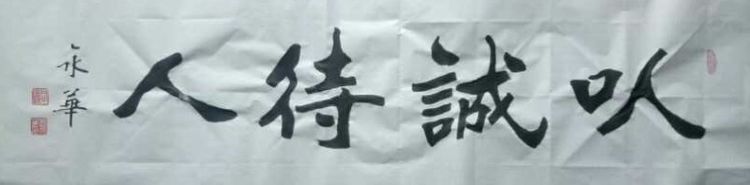 以誠待人
永華